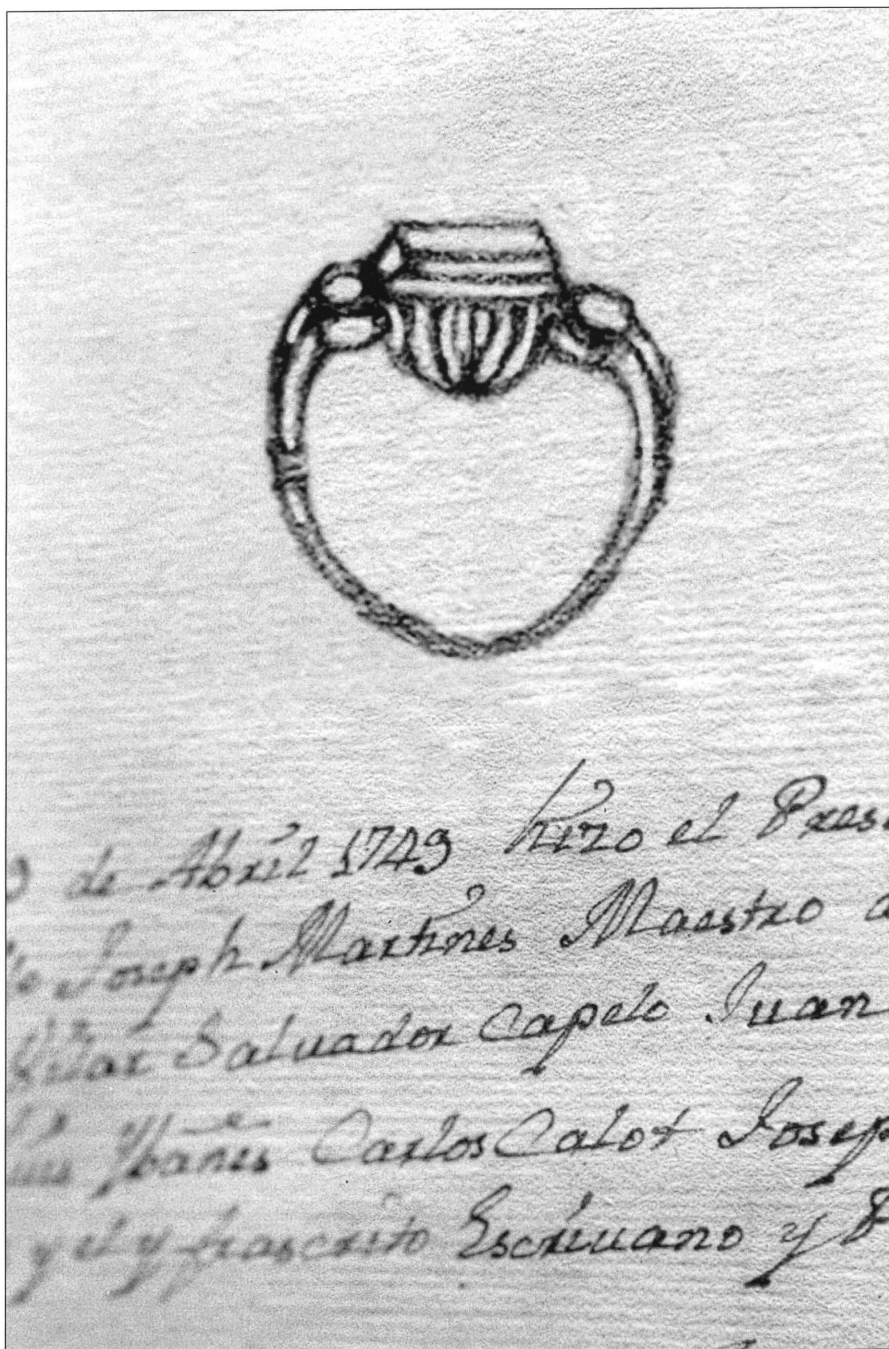 de Abril 1749 hizo el Pres
Joseph Martines Maestro
Saluador Capelo Juan
Ybañes Carlos Calot Josep
y el ynfrascrito Escriuano y